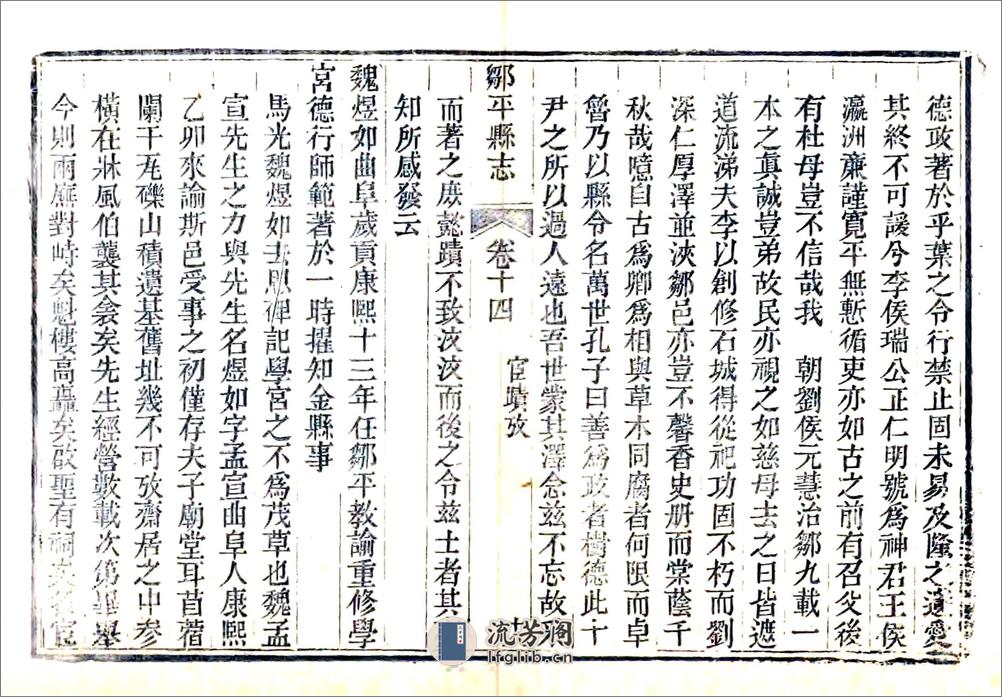 德政著於乎葉之令行禁止固未易及隆之遺愛
其終不可諼兮李侯瑞公正仁明號為神君王侯
瀛洲蔗謹寬平無慙循吏亦如古之前有召父後
有杜母豈不信哉我　朝劉侯元慧治鄒九載一
本之眞誠豈弟故民亦視之如慈母去之日皆遮
道流涕夫李以創修石城得從祀功固不朽而劉
深仁厚澤並浹鄒邑亦豈不馨香史册而棠蔭千
秋哉噫自古為卿為相與草木同腐者何限而卓
魯乃以縣令名萬世孔子曰善為政者樹德此十
尹之所以過人遠也吾世蒙其澤念兹不忘故
鄒平縣志　卷十四　宦蹟攷
而著之庶懿蹟不致汶汶而後之令兹土者其
知所感發云
魏煜如曲阜歲貢康熙十三年任鄒平教諭重修學
宮德行師範著於一時擢知金縣事
馬光魏煜如去思碑記學宮之不為茂草也魏孟
宣先生之力與先生名煜如字孟宣曲阜人康熙
乙卯來諭斯邑受事之初僅存夫子廟堂耳苜蓿
闌干瓦礫山積遺基舊址幾不可攷齋居之中參
橫在牀風伯襲其衾矣先生經營數載次第畢舉
今則兩廡對峙矣魁樓高矗矣啟聖有祠矣名宦
流芳閣
lfglib.cn